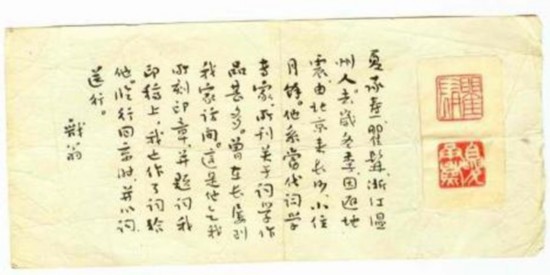 夏承焘 瞿髯，浙江温
州人。去岁冬季，因避地
震，由北京来长沙，小住
月馀。他系当代词学
专家，所刊关于词学作
品甚多。曾在长屡到
我家访问。这是他乞我
所刻印章，并题词我
印稿上，我也作了词给
他。临行回京时，并以词
送行。
翁
瞿髯
夏承焘